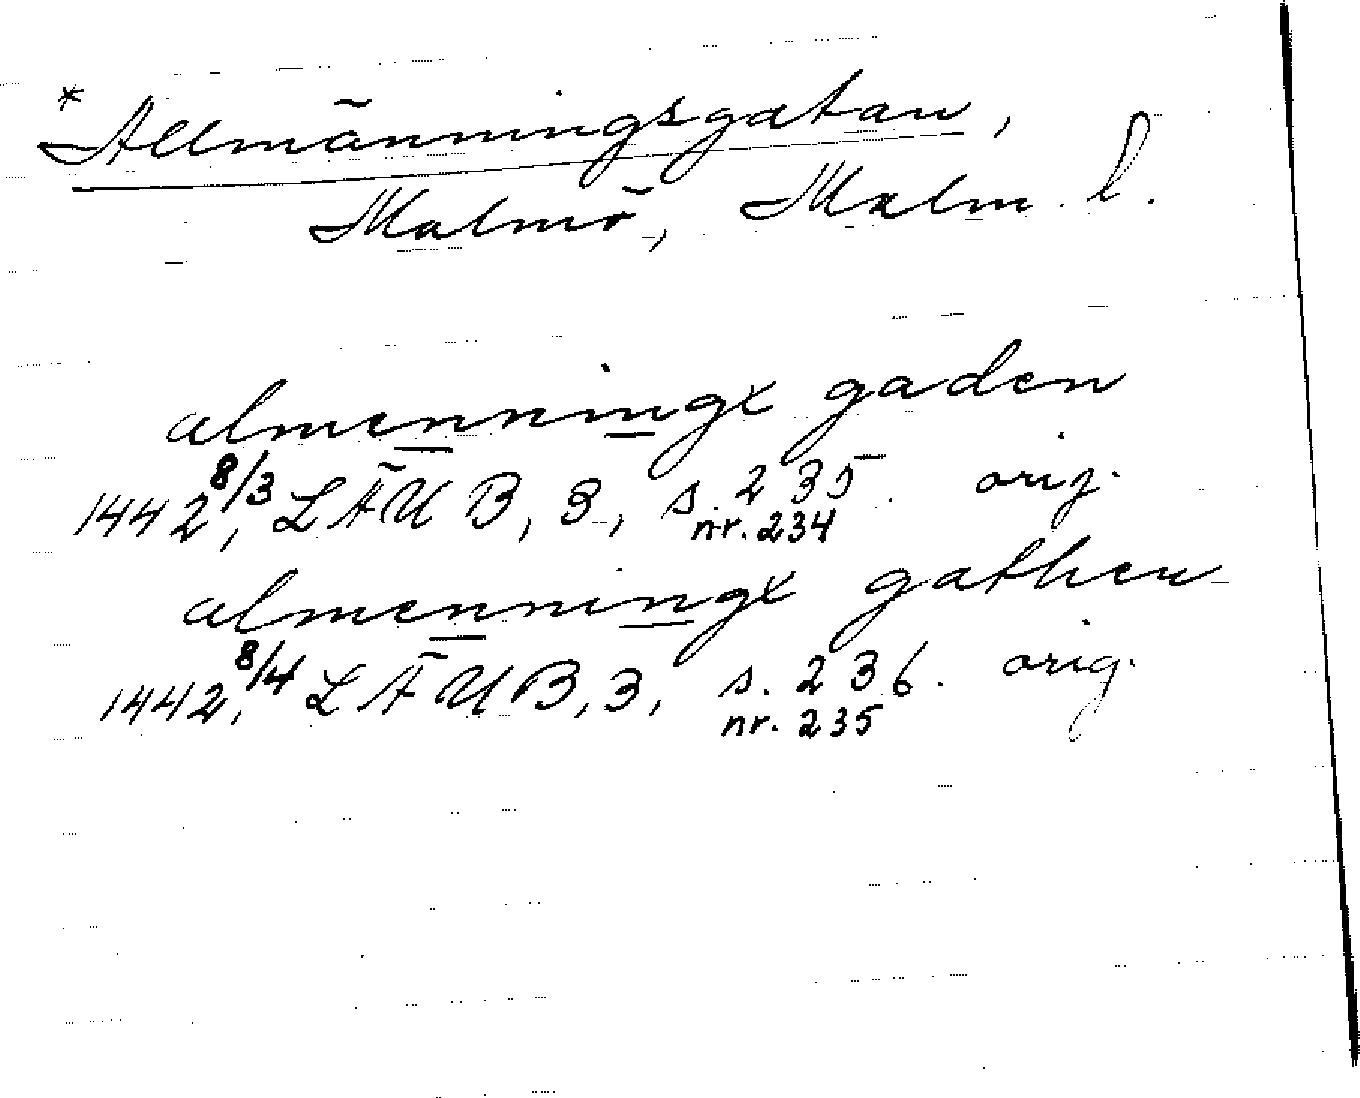 * Allmänningsgatan,
Malmö, Malm. l.
almenningx gaden
1442, 8/3 LÄUB, 3, s. 235. orig.
nr. 234
almenningx gathen
1442, 8/4 LÄUB, 3, s. 236. orig.
nr. 235